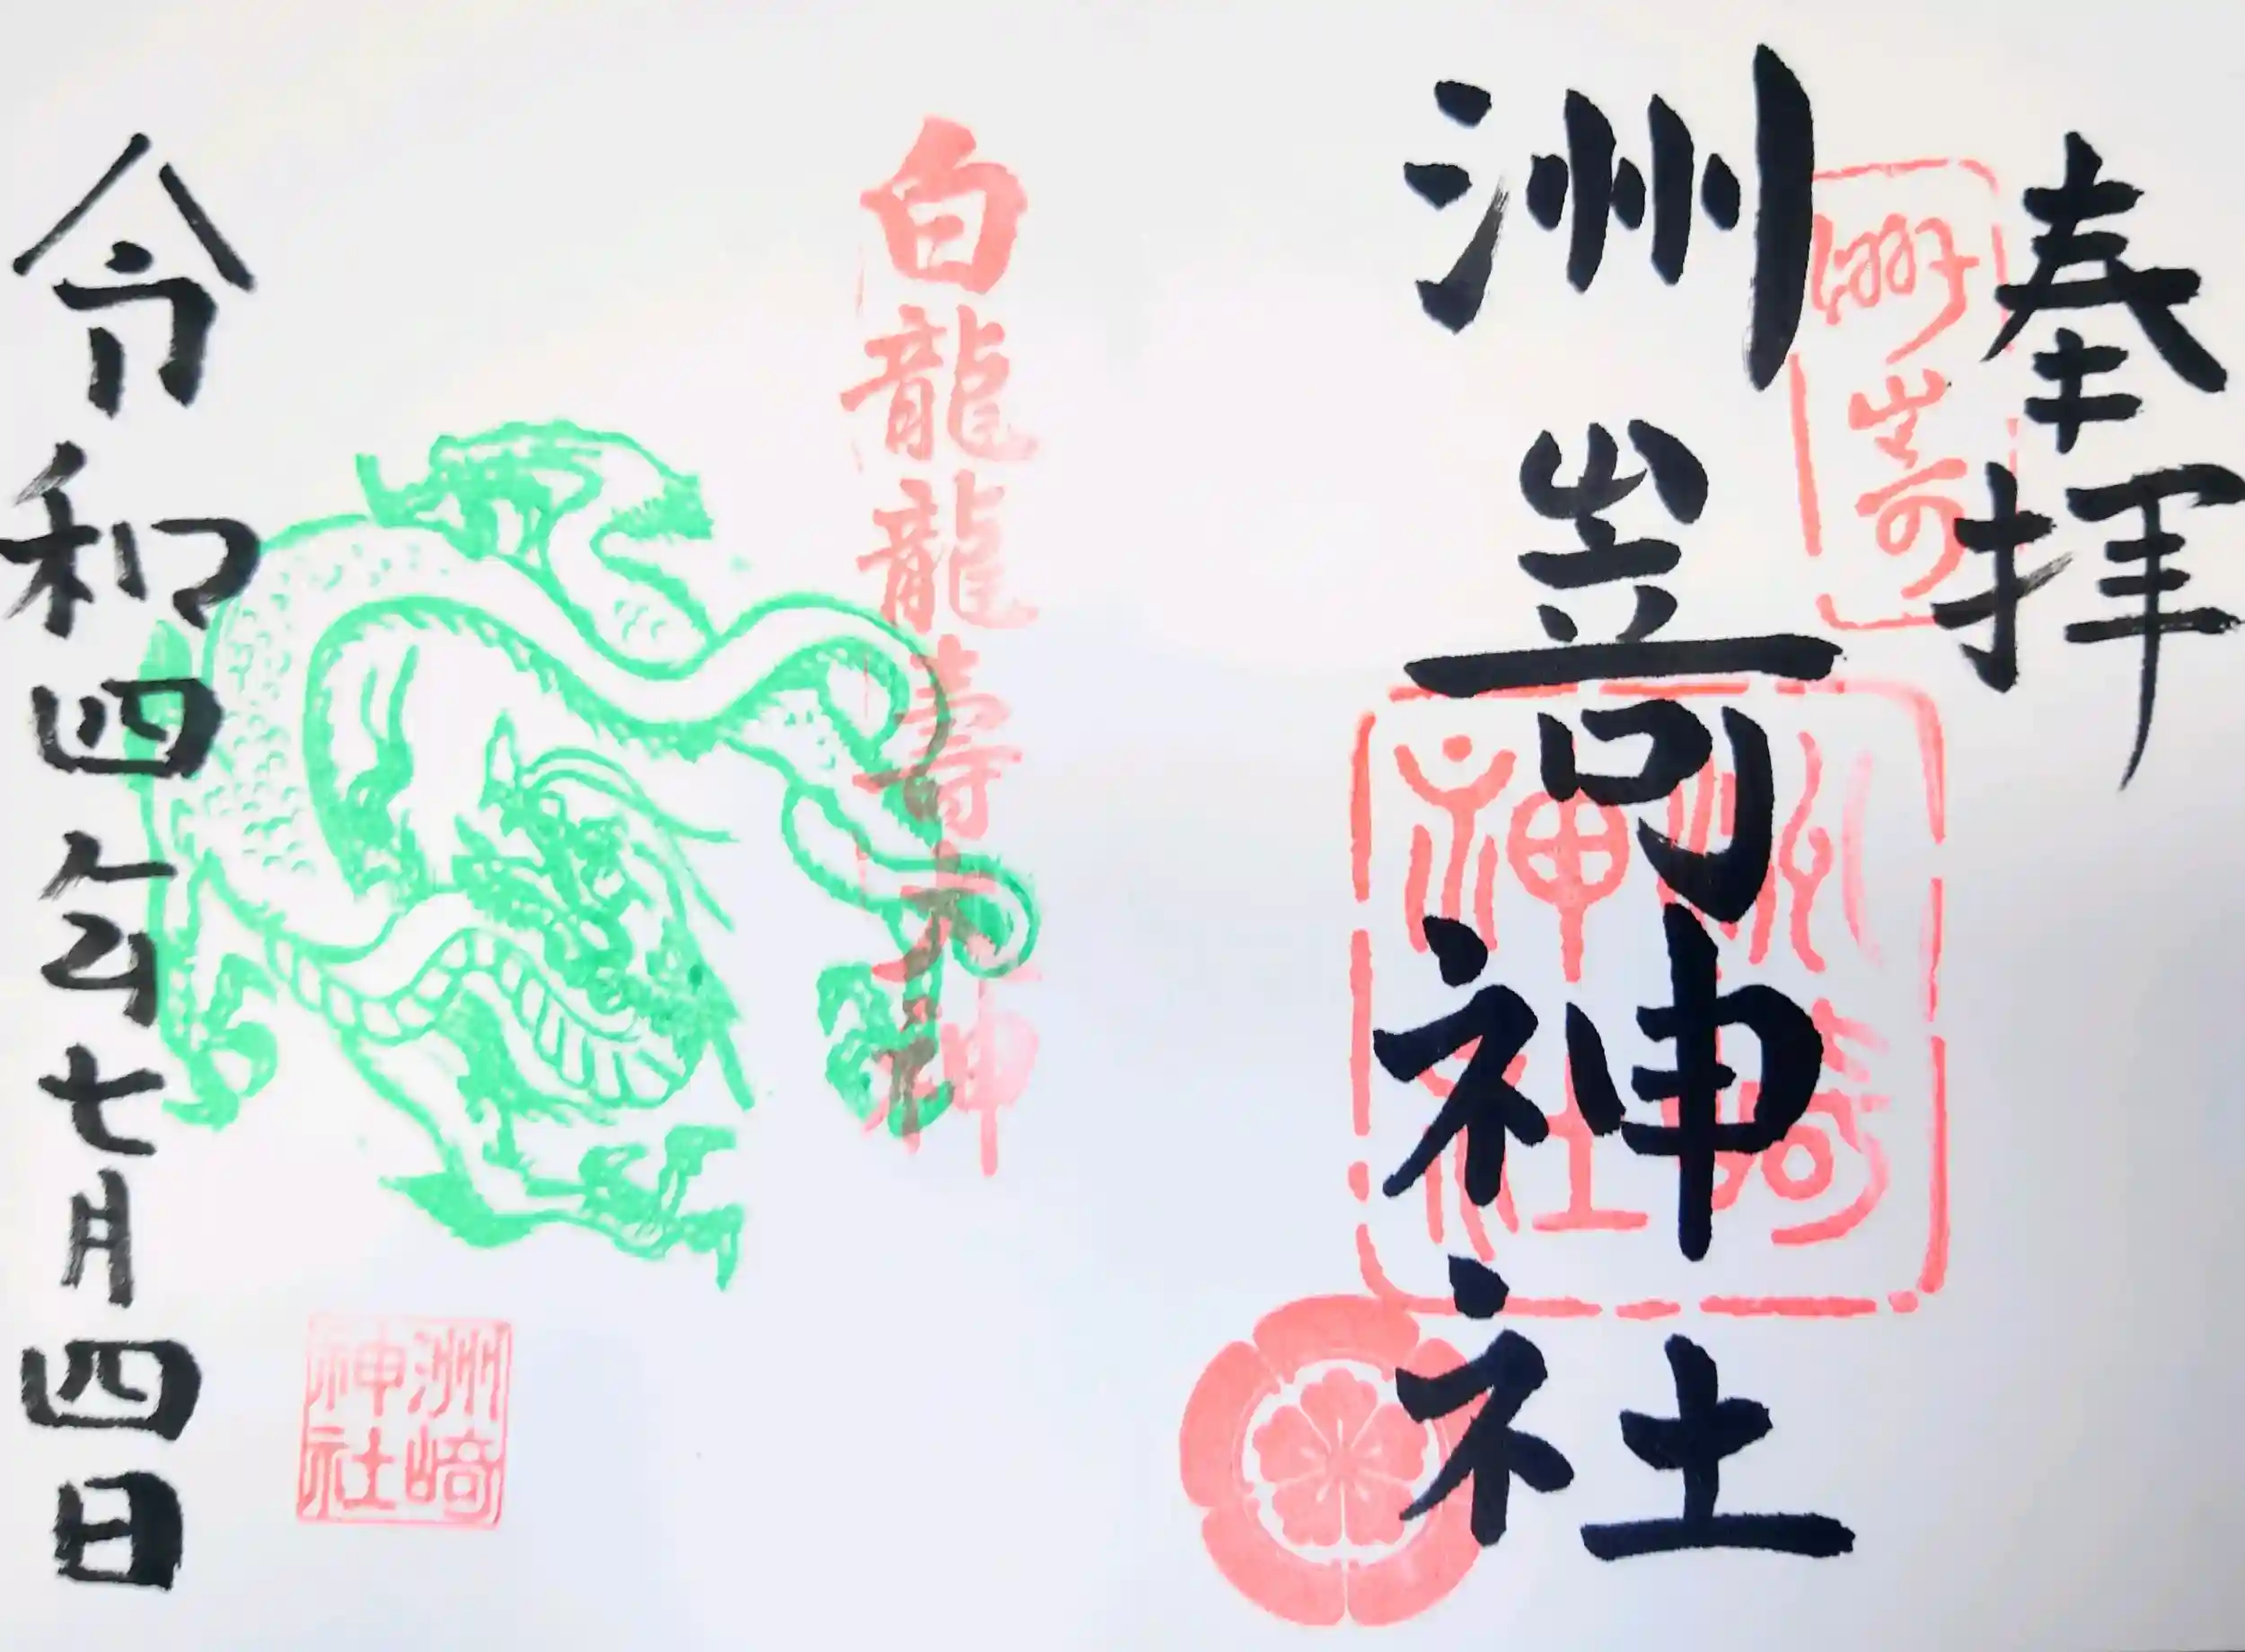 奉拝
洲崎
洲嵜神社
洲崎神社
白龍龍壽大神
洲崎神社
令和四年七月四日